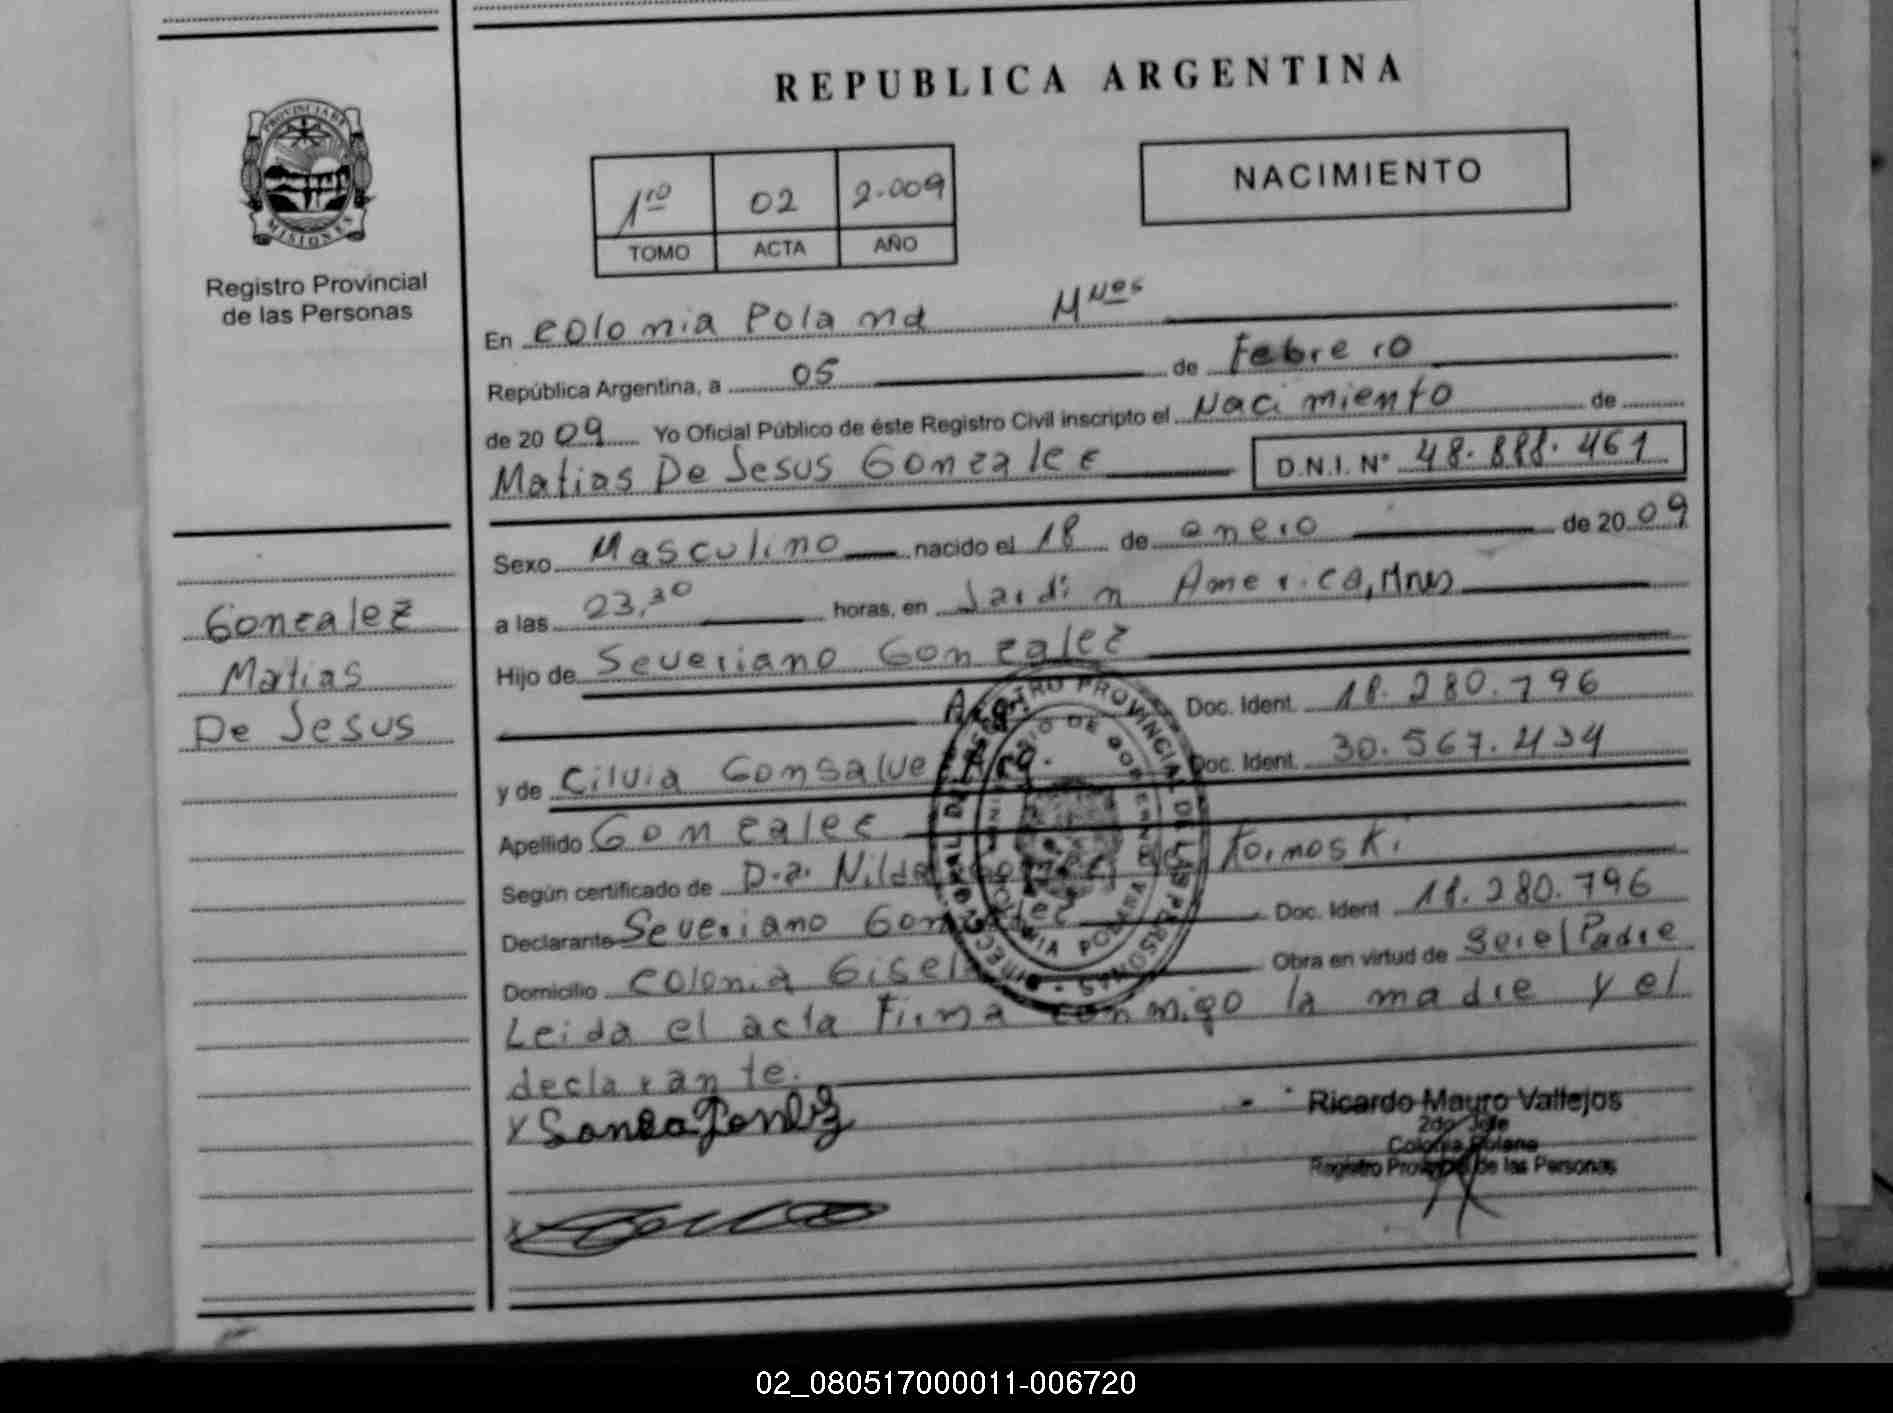 REPUBLICA ARGENTINA
PROVINCIA DE
MISIONES
Registro Provincial
de las Personas
1ro 02 2.009
TOMO ACTA AÑO
NACIMIENTO
En Colonia Polana Mnes
República Argentina, a 05 de Febrero
de 2009 Yo Oficial Público de éste Registro Civil inscripto el Nacimiento de
Matias De Jesus Gonzalez D.N.I. N° 48.888.461
Sexo Masculino nacido el 18 de enero de 2009
a las 23,30 horas, en Jardin America, Mnes
Hijo de Severiano Gonzalez
Arg. Doc. Ident. 18.280.796
y de Cilvia Gonsalvez Arg. Doc. Ident. 30.567.434
Apellido Gonzalez
Según certificado de D.a. Nilda
Declarante Severiano Gonzalez Doc. Ident 18.280.796
Domicilio Colonia Gisela Obra en virtud de Ser el Padre
Leida el acta Firma conmigo la madre y el
declarante.
Gonzalez
Matias
De Jesus
Ricardo Mauro Vallejos
2do Jefe
Colonia Polana
Registro Provincial de las Personas
02_080517000011-006720